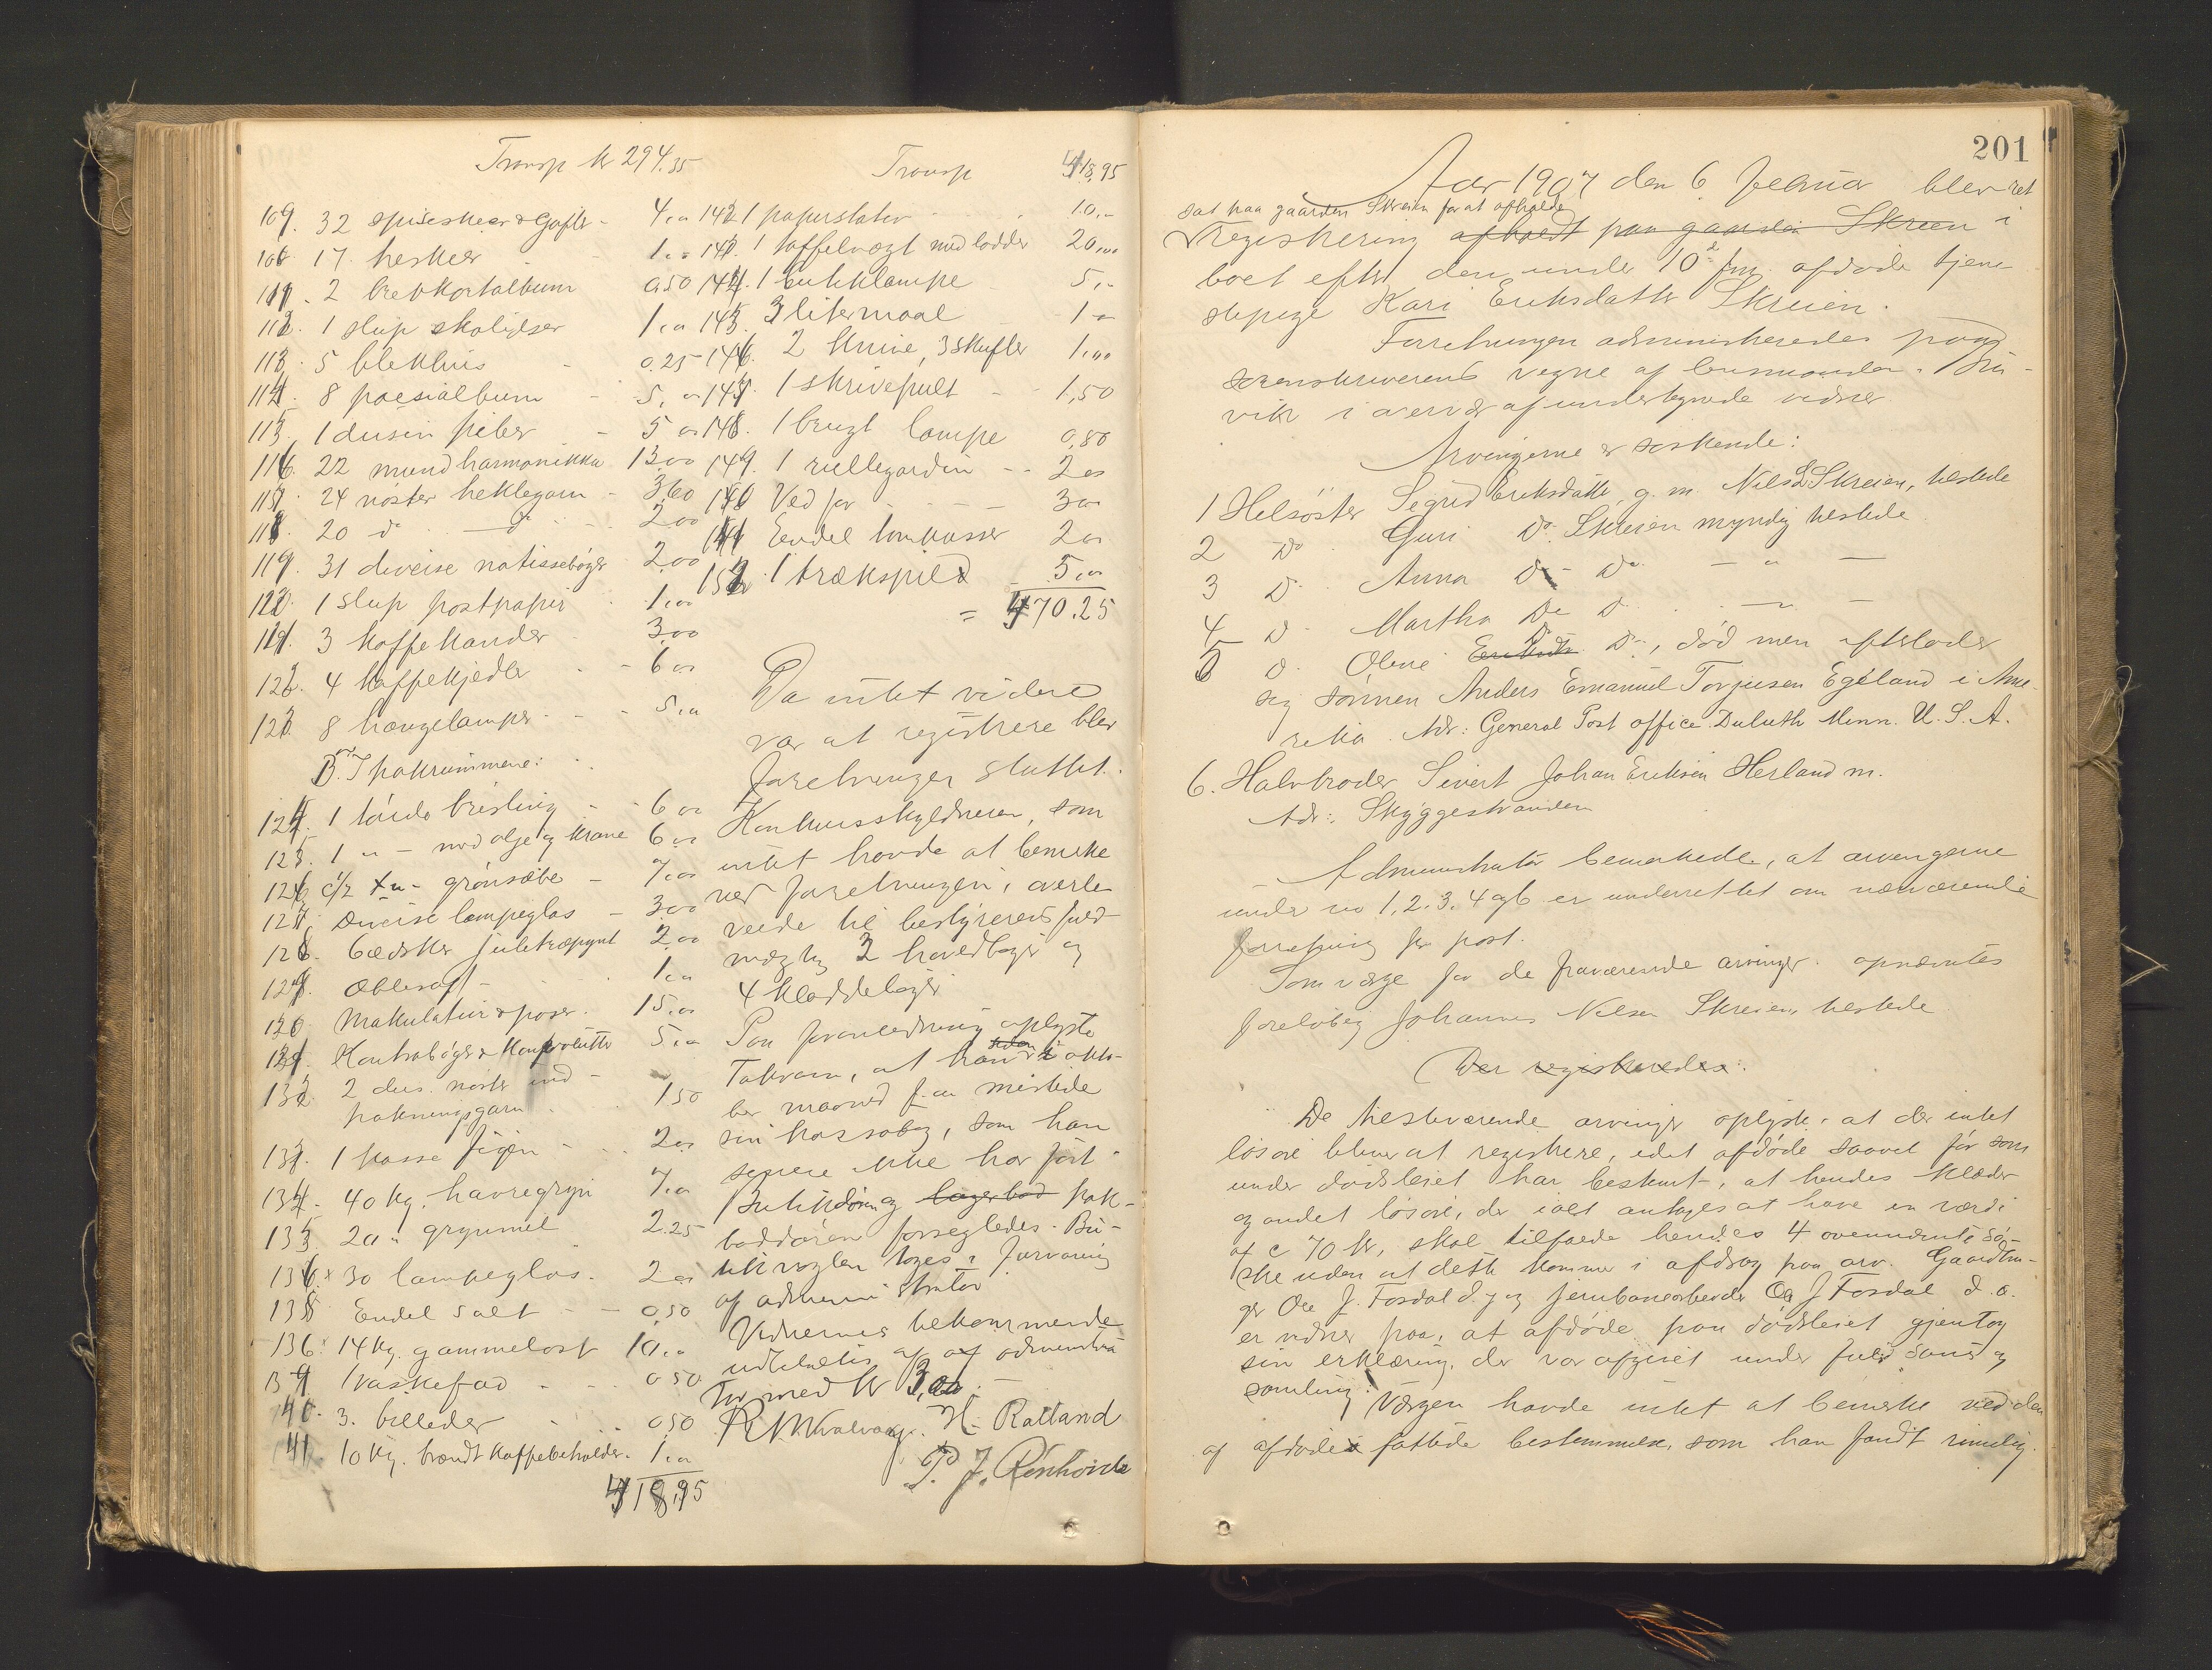 Transp kr 294.35
109. 32 spiseskeer & Gafler - 4,00
108 17 teskeer - 1,00
2 brevkortalbum 0,50
1 slup skolisser 1,00
5 blekhus - 0,25
114. 8 poesialbum - 5,00
1 dusin piber - 5 00
116. 22 mundharmonikka 13,00
24 nöster heklegarn - 3,60
118 20 do - 2,00
119. 31 diverse notissebøger 2,00
1 slup postpapir 1,00
3 kaffekander 3,00
4 kaffekjedler - 6 00
8 hængelamper - 5,00
B. I pakrummene:
124. 1 tönde brisling - 6 00
125. 1 " - med olje og krane 6 00
126 grönsæbe - 7,00
127. Diverse lampeglas - 3,00
128. 6 æsker juletræpynt 2,00
129. Æblesaft - 1,00
Makulatur & poser. 15,00
Kontrabøger & Konvolutter 5,00
132 2 dus. nöster ind-
pakningsgarn 1 50
1 kasse figen - 2 00
134. 40 kg. havregryn 7,00
135 20 " grynmel 2.25
136. 30 lampeglas. 2 00
Endel salt - 0,50
14 kg. gammelost 10,00
139 1 vaskefad - 0 50
140. 3. billeder 0,50
141. 10 kg. brændt kaffebeholder. 1,00
418,95
Transp 418,95
142. 1 papirstativ 10,-
1 taffelvægt med lodder 20,00
144. 1 butiklampe 5,-
145. 3 litermaal - 1 -
146. 2 knive, 3 skufler 1,00
147. 1 skrivepult - 1,50
148. 1 brugt lampe 0,80
149. 1 rullegardin - - 2 00
Ved for - 3 00
Endel tomkasser 2 00
152. 1 trækspild 5,00
= 470.25
Da intet videre
var at registrere blev
forretningen sluttet.
Konkursskyldneren, som
intet havde at bemerke
ved forretningen, overle-
verede til bestyrerens fuld-
mægtig 2 hovedbøger og
4 kladdebøger
Paa foranledning oplyste
Takvam, at han siden i okto-
ber maaned f.a. mistede
sin kassabog, som han
senere ikke har ført.
Butikdören og lagerbod pak-
boddören forsegledes. Bu-
tiknøglen toges i forvaring
af administrator
Vidnernes tilkommende
udbetaltes af administra-
tor med kr 3,00.
H. Rattand
P. J.
201
Aar 1907 den 6 februar blev ret
sat paa gaarden Skreien for at afholde
registrering afholdt paa gaarden Skreien i
boet efter den under 10de f.m. afdöde tjene-
stepige Kari Eriksdatter Skreien.
Forretningen administreredes paa
sorenskriverens vegne af lensmanden.
vik i overvær af undertegnede vidner.
Arvingerne er söskende:
1 Helsöster Sigrid Eriksdatter, g. m. Nils L Skreien, tilstede
2 Do Guri Do. Skreien myndig tilstede
3 D. Anna Do - Do. - " -
4 D. Martha Do D. - " -
5 D. Oline Eriksdtr. D., död men efterlader
sig sönnen Anders Emanuel Torjusen Egeland i Ame-
rika. Adr: General Post office Duluth Minn. U. S. A.
6. Halvbroder Sivert Johan Eriksen Herland m.
Adr: Skyggestranden
Administrator bemerkede, at arvingerne
under no 1, 2, 3, 4 og 6 er underrettet om nærværende
forretning per post.
Som værge for de fraværende arvinger opnævntes
foreløbig Johannes Nilsen Skreien, tilstede
Der registreredes:
De tilstedeværende arvinger oplyste, at der intet
lösöre bliver at registrere, idet afdöde saavel för som
under dödsleiet har bestemt, at hendes klæder
og andet lösöre, der ialt antages at have en værdi
af c 70 kr, skal tilfalde hendes 4 ovennævnte sö-
stre uden at dette kommer i afdrag paa arv. Gaardbru-
ger Ole J. Fosdal d. y. og jernbanearbeider Ola J Fosdal d. æ.
er vidner paa, at afdöde paa dödsleiet gjentog
sin erklæring, der var afgivet under fuld sans og
samling.
Værgen havde intet at bemerke ved den
af afdöde fattede bestemmelse, som han fandt rimelig.